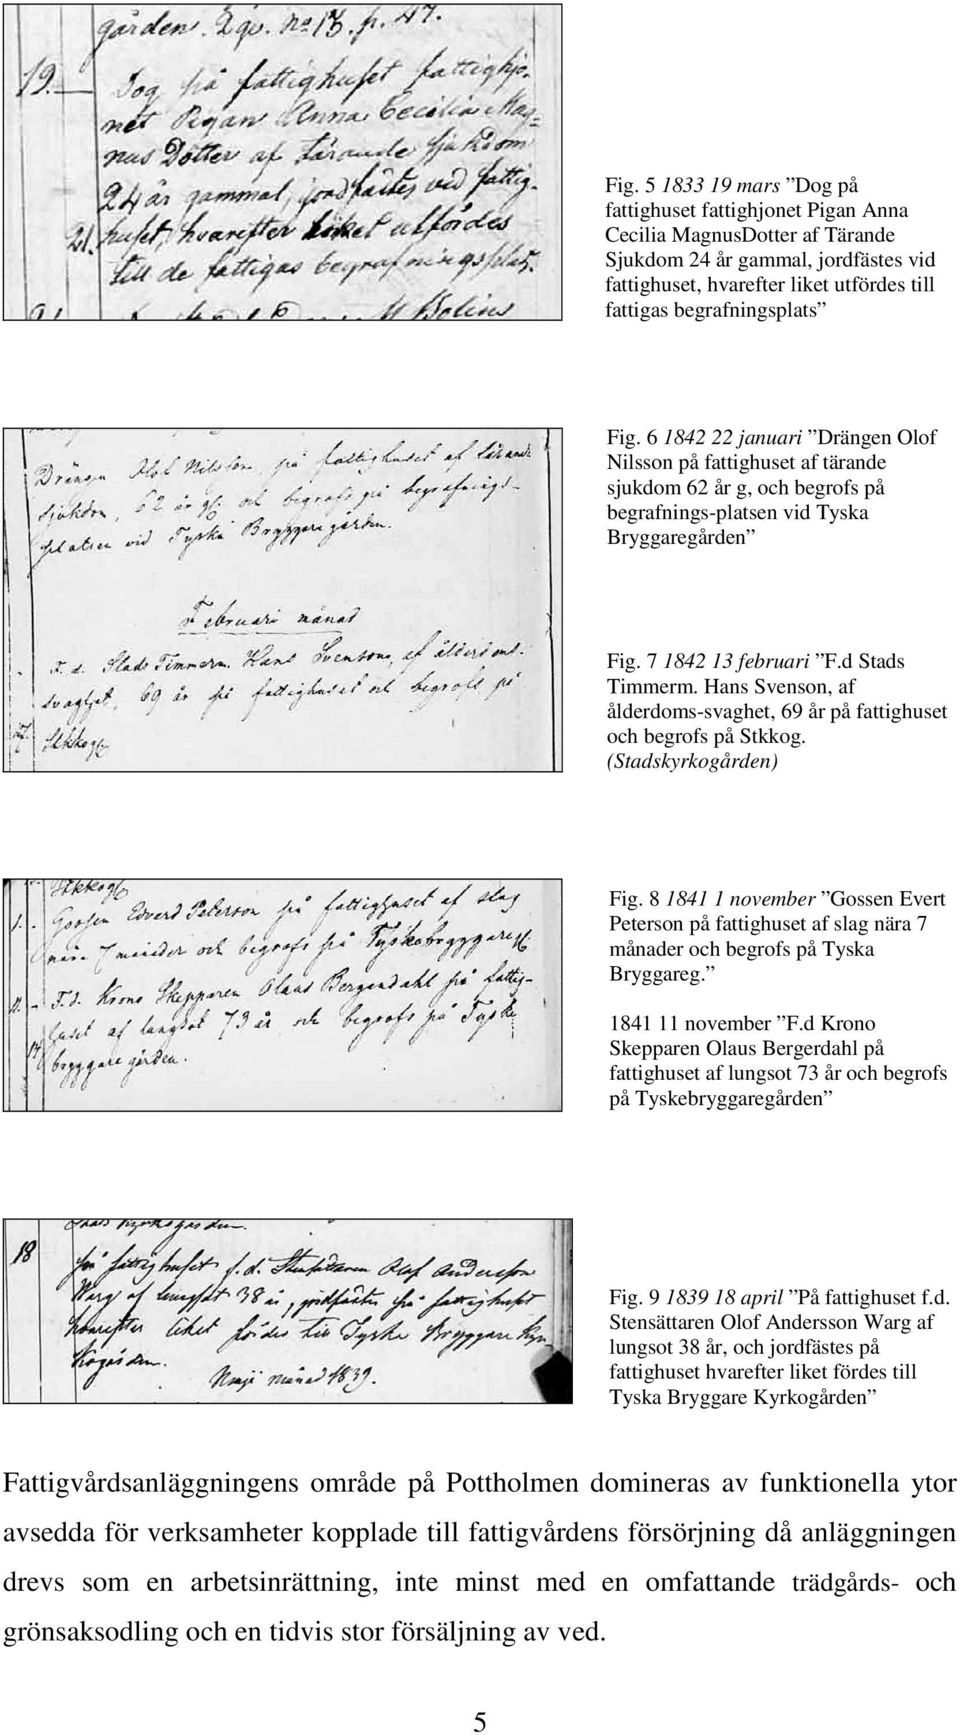 gården. 2 qv. no 13. p. 47.
19. Dog på fattighuset fattighjo-
net Pigan Anna Cecilia Mag-
nus Dotter af tärande sjukdom
24 år gammal, jordfästes vid fattig-
21. huset, hvarefter liket utfördes
till de fattigas begrafningsplats.
M Bolins
Fig. 5 1833 19 mars ”Dog på
fattighuset fattighjonet Pigan Anna
Cecilia MagnusDotter af Tärande
Sjukdom 24 år gammal, jordfästes vid
fattighuset, hvarefter liket utfördes till
fattigas begrafningsplats”
Drängen Olof Nilsson, på fattighuset af tärande
sjukdom, 62 år gl. och begrofs på begrafnings-
platsen vid Tyska Bryggare gården.
Februari månad
F. d. Stads Timmerm. Hans Svenson, af ålderdoms-
svaghet, 69 år på fattighuset och begrofs på
Stkkog
Fig. 6 1842 22 januari ”Drängen Olof
Nilsson på fattighuset af tärande
sjukdom 62 år g, och begrofs på
begrafnings-platsen vid Tyska
Bryggaregården”
Fig. 7 1842 13 februari ”F.d Stads
Timmerm. Hans Svenson, af
ålderdoms-svaghet, 69 år på fattighuset
och begrofs på Stkkog.
(Stadskyrkogården)
Stkkog
1. Gossen Edvard Peterson på fattighuset af slag
nära 7 månader och begrofs på Tyskabryggareg
11. F.d. Krono Skepparen Olaus Bergendahl på fattig-
14 huset af lungsot 73 år och begrofs på Tyske
bryggare gården.
Fig. 8 1841 1 november ”Gossen Evert
Peterson på fattighuset af slag nära 7
månader och begrofs på Tyska
Bryggareg.”
1841 11 november ”F.d Krono
Skepparen Olaus Bergerdahl på
fattighuset af lungsot 73 år och begrofs
på Tyskebryggaregården”
Stads Kyrkogården.
18 på fattighuset f.d. Stensättaren Olof Andersson
Warg af lungsot 38 år, jordfästes på fattighuset
hvarefter liket fördes till Tyska Bryggare Kyr-
kogården.
Maji månad 1839.
Fig. 9 1839 18 april ”På fattighuset f.d.
Stensättaren Olof Andersson Warg af
lungsot 38 år, och jordfästes på
fattighuset hvarefter liket fördes till
Tyska Bryggare Kyrkogården”
Fattigvårdsanläggningens område på Pottholmen domineras av funktionella ytor
avsedda för verksamheter kopplade till fattigvårdens försörjning då anläggningen
drevs som en arbetsinrättning, inte minst med en omfattande trädgårds- och
grönsaksodling och en tidvis stor försäljning av ved.
5